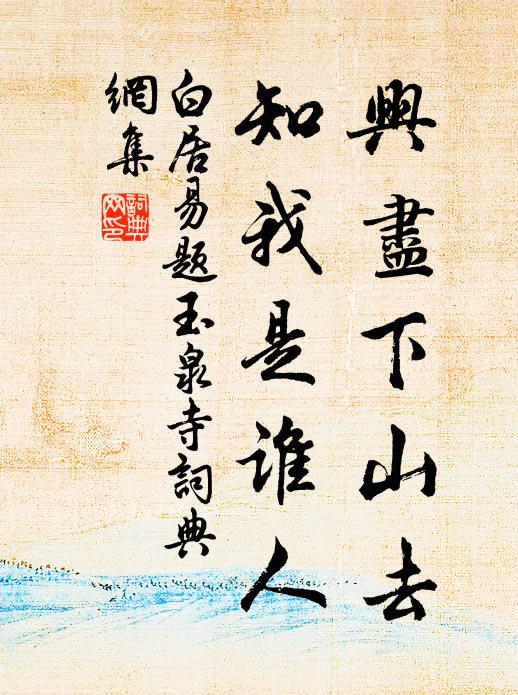 興盡下山去
知我是誰人
白居易題玉泉寺詞典
網集
詞典
网印